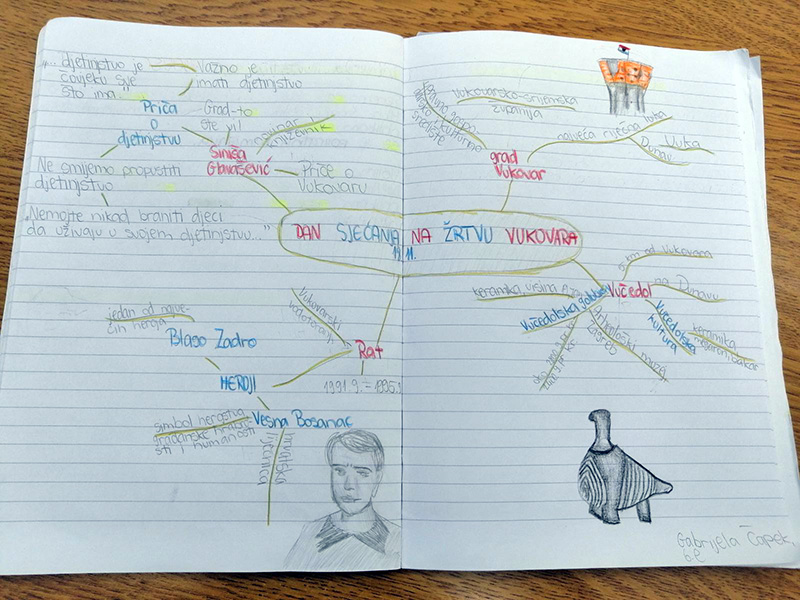 „... djetinjstvo je
čovjeku sve
što ima."
Važno je
imati djetinjstvo
Priča
o
djetinjstvu
Grad-to
ste vi!
Siniša
Glavašević
novinar
književnik
Priče o
Vukovaru
Ne smijemo propustiti
djetinjstvo
„Nemojte nikad braniti djeci
da uživaju u svojem djetinjstvu..."
DAN SJEĆANJA NA ŽRTVU VUKOVARA
11.
Vukovarsko-srijemska
županija
grad
Vukovar
najveća riječna luka
Vuka
Dunav
jedan od najve-
ćih heroja
Blago Zadro
HEROJI
Vukovarski
vodotoranj
Rat
Vesna Bosanac
simbol herojstva
građanske hrabro-
sti i humanosti
hrvatska
liječnica
Vučedol
km od Vukovara
na Dunavu
Vučedolska
kultura
keramika
bakar
keramika, visina
Vučedolska golubica
Arheološki muzej
Zagreb
Gabrijela Čapek,